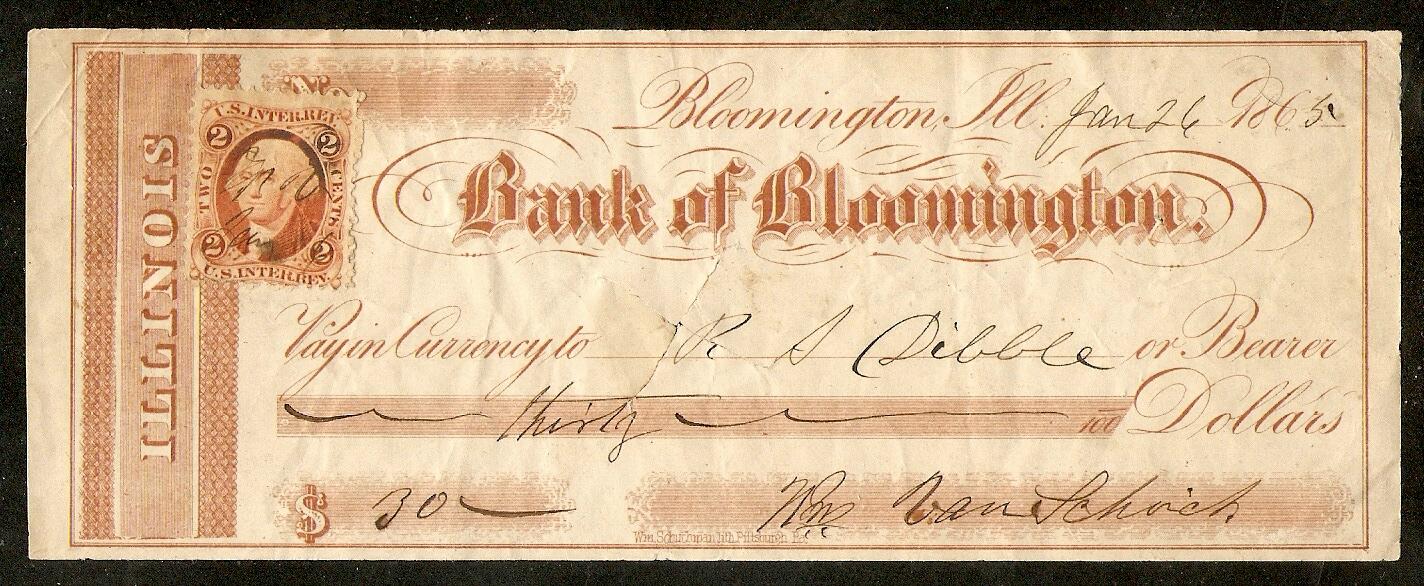 No.
Bloomington, Ill. Jan 26 1865
Bank of Bloomington.
ILLINOIS
U.S. INTER. REV.
2 2
TWO CENTS
2 2
U.S. INTER. REV.
Pay in Currency to R S Dibble or Bearer
thirty 100 Dollars
$ 30
Wm Van Schoick
Wm. Schuchman, lith. Pittsburgh, Pa.